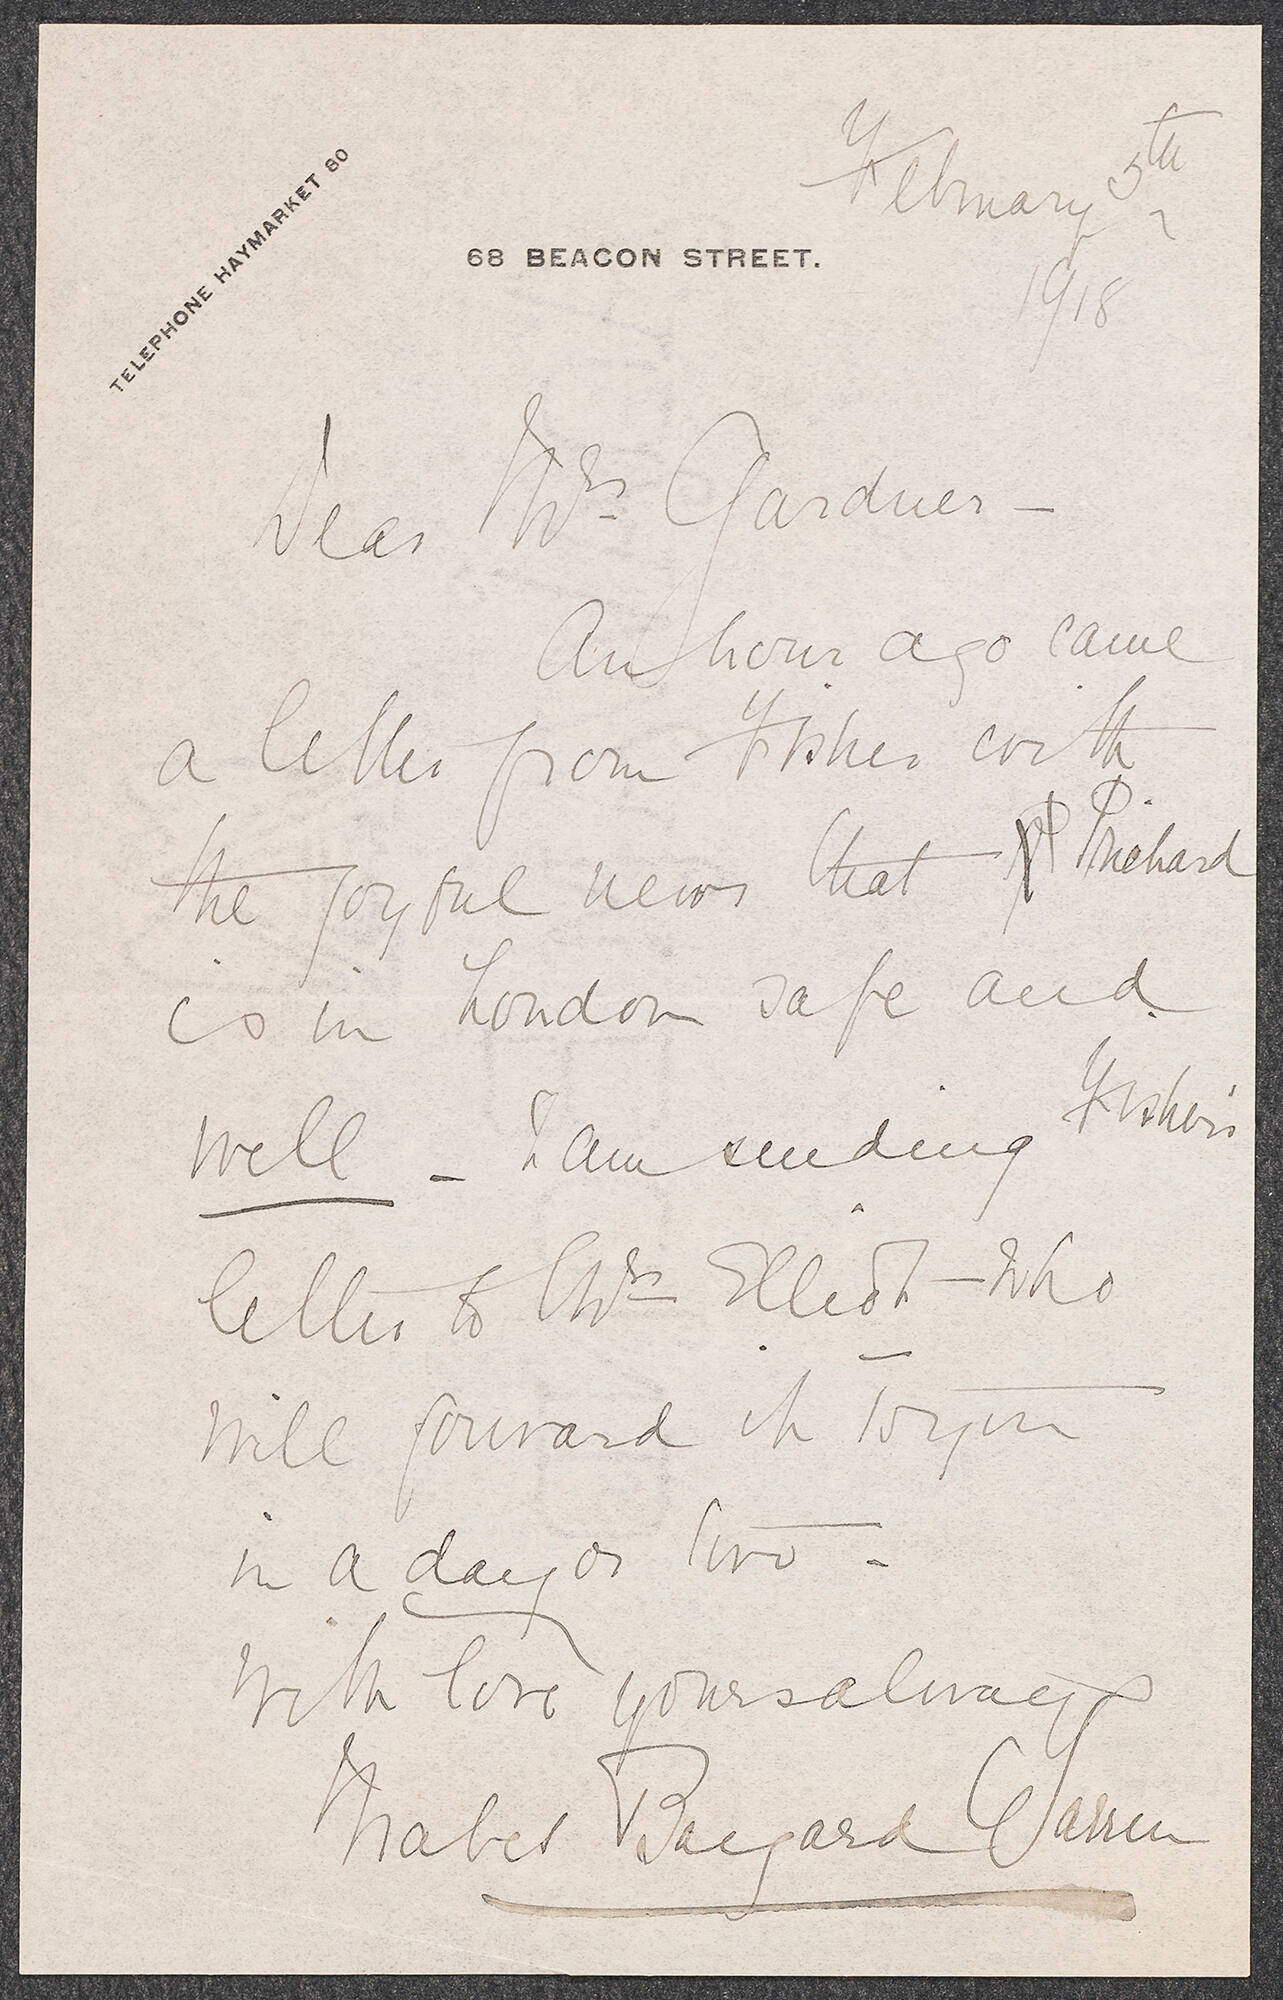 TELEPHONE HAYMARKET 80
68 BEACON STREET.
February 5th
1918
Dear Mrs Gardner –
An hour ago came
a letter from Fisher with
the joyful news that Prichard
is in London safe and
well – I am sending Fisher's
letter to Mrs Elliot – who
will forward it to you
in a day or two –
With love yours always
Mabel Bayard Warren